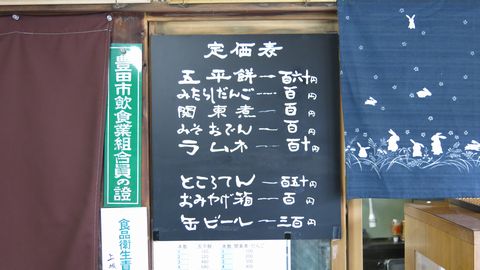 定価表
五平餅 一 百六十円
みたらしだんご 一 百円
関東煮 一 百円
みそおでん 一 百円
ラムネ 一 百十円
ところてん 一 百五十円
おみやげ箱 一 百円
缶ビール 一 三百円
豊田市飲食業組合員の證
食品衛生責